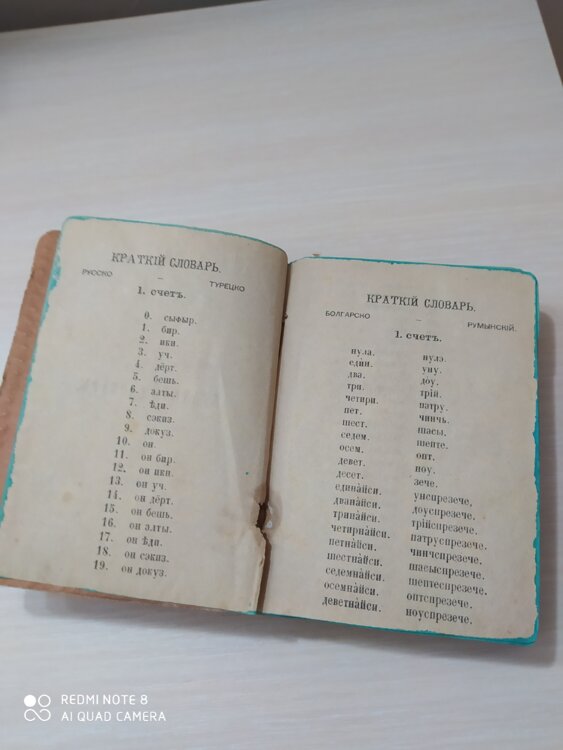 КРАТКІЙ СЛОВАРЬ.
РУССКО — ТУРЕЦКО
1. счетъ.
0. сыфыр.
1. бир.
2. ики.
3. уч.
4. дёрт.
5. бешь.
6. алты.
7. ѣди.
8. сэкиз.
9. докуз.
10. он.
11. он бир.
12. он ики.
13. он уч.
14. он дёрт.
15. он бешь.
16. он алты.
17. он ѣди.
18. он сэкиз.
19. он докуз.
КРАТКІЙ СЛОВАРЬ.
БОЛГАРСКО — РУМЫНСКІЙ.
1. счетъ.
нула. нулэ.
един. уну.
два. доу.
три. трій.
четири. патру.
пет. чинчь.
шест. шасы.
седем. шепте.
осем. опт.
девет. ноу.
десет. зече.
единàйси. унспрезече,
дванàйси. доуспрезече.
тринàйси. трійспрезече.
четирнàйси. патруспрезече.
петнàйси. чинчспрезече.
шестнàйси. шасыспрезече.
седемнàйси. шептеспрезече.
осемнàйси. оптспрезече.
деветнàйси. ноуспрезече.
REDMI NOTE 8
AI QUAD CAMERA